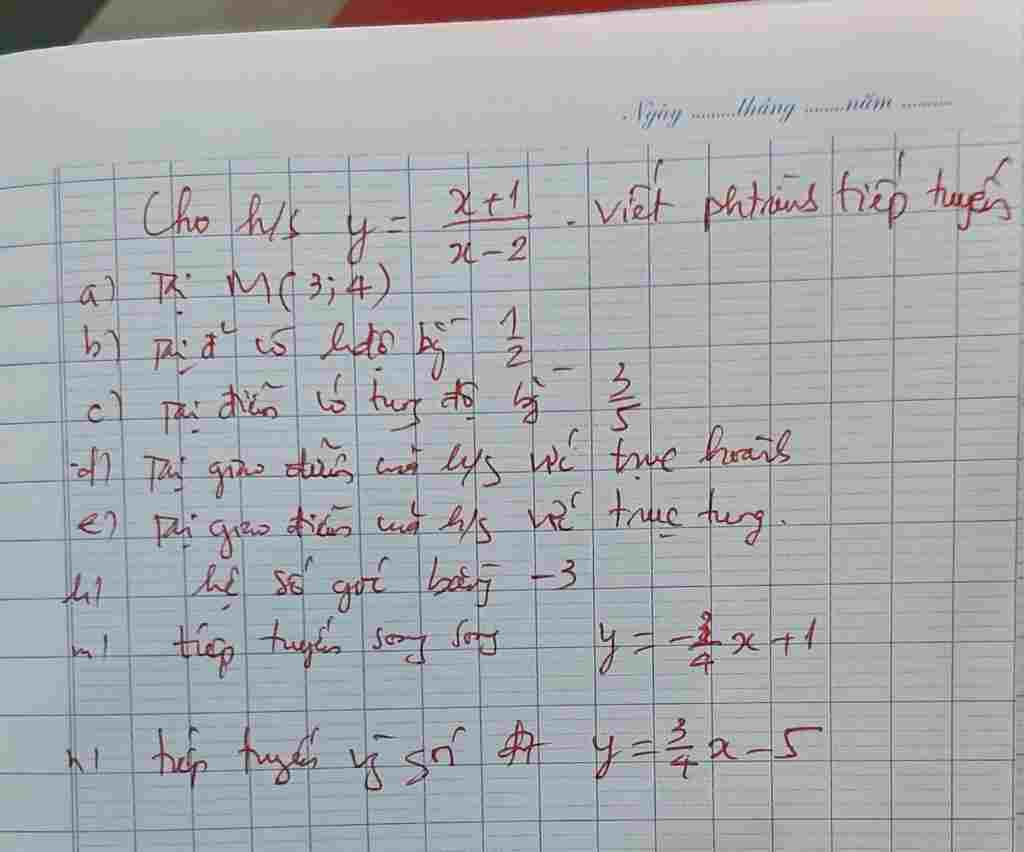 Ngày .........tháng .........năm ...........
Cho h/s y = \frac{x+1}{x-2} . viết phtrình tiếp tuyến
a) Tại M(3;4)
b) Tại đ² có hđộ bg \frac{1}{2}
c) Tại điểm có tung độ bg \frac{3}{5}
d) Tại giao điểm của h/s với trục hoành
e) Tại giao điểm của h/s với trục tung.
h) hệ số góc bằng -3
m) tiếp tuyến song song y = -\frac{3}{4}x + 1
n) tiếp tuyến y = \frac{3}{4}x - 5